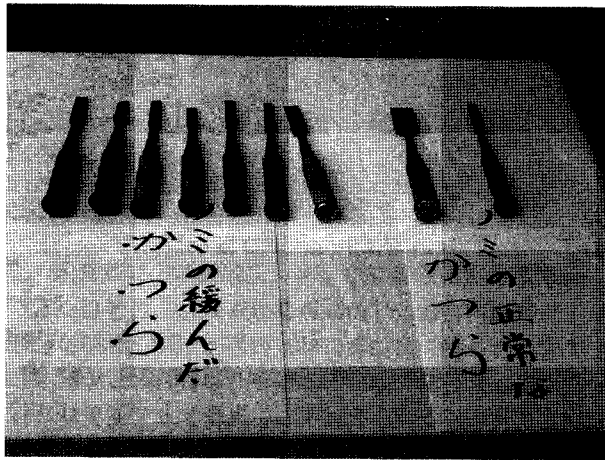 ミの正常な
かつら
ミの緩んだ
かつら